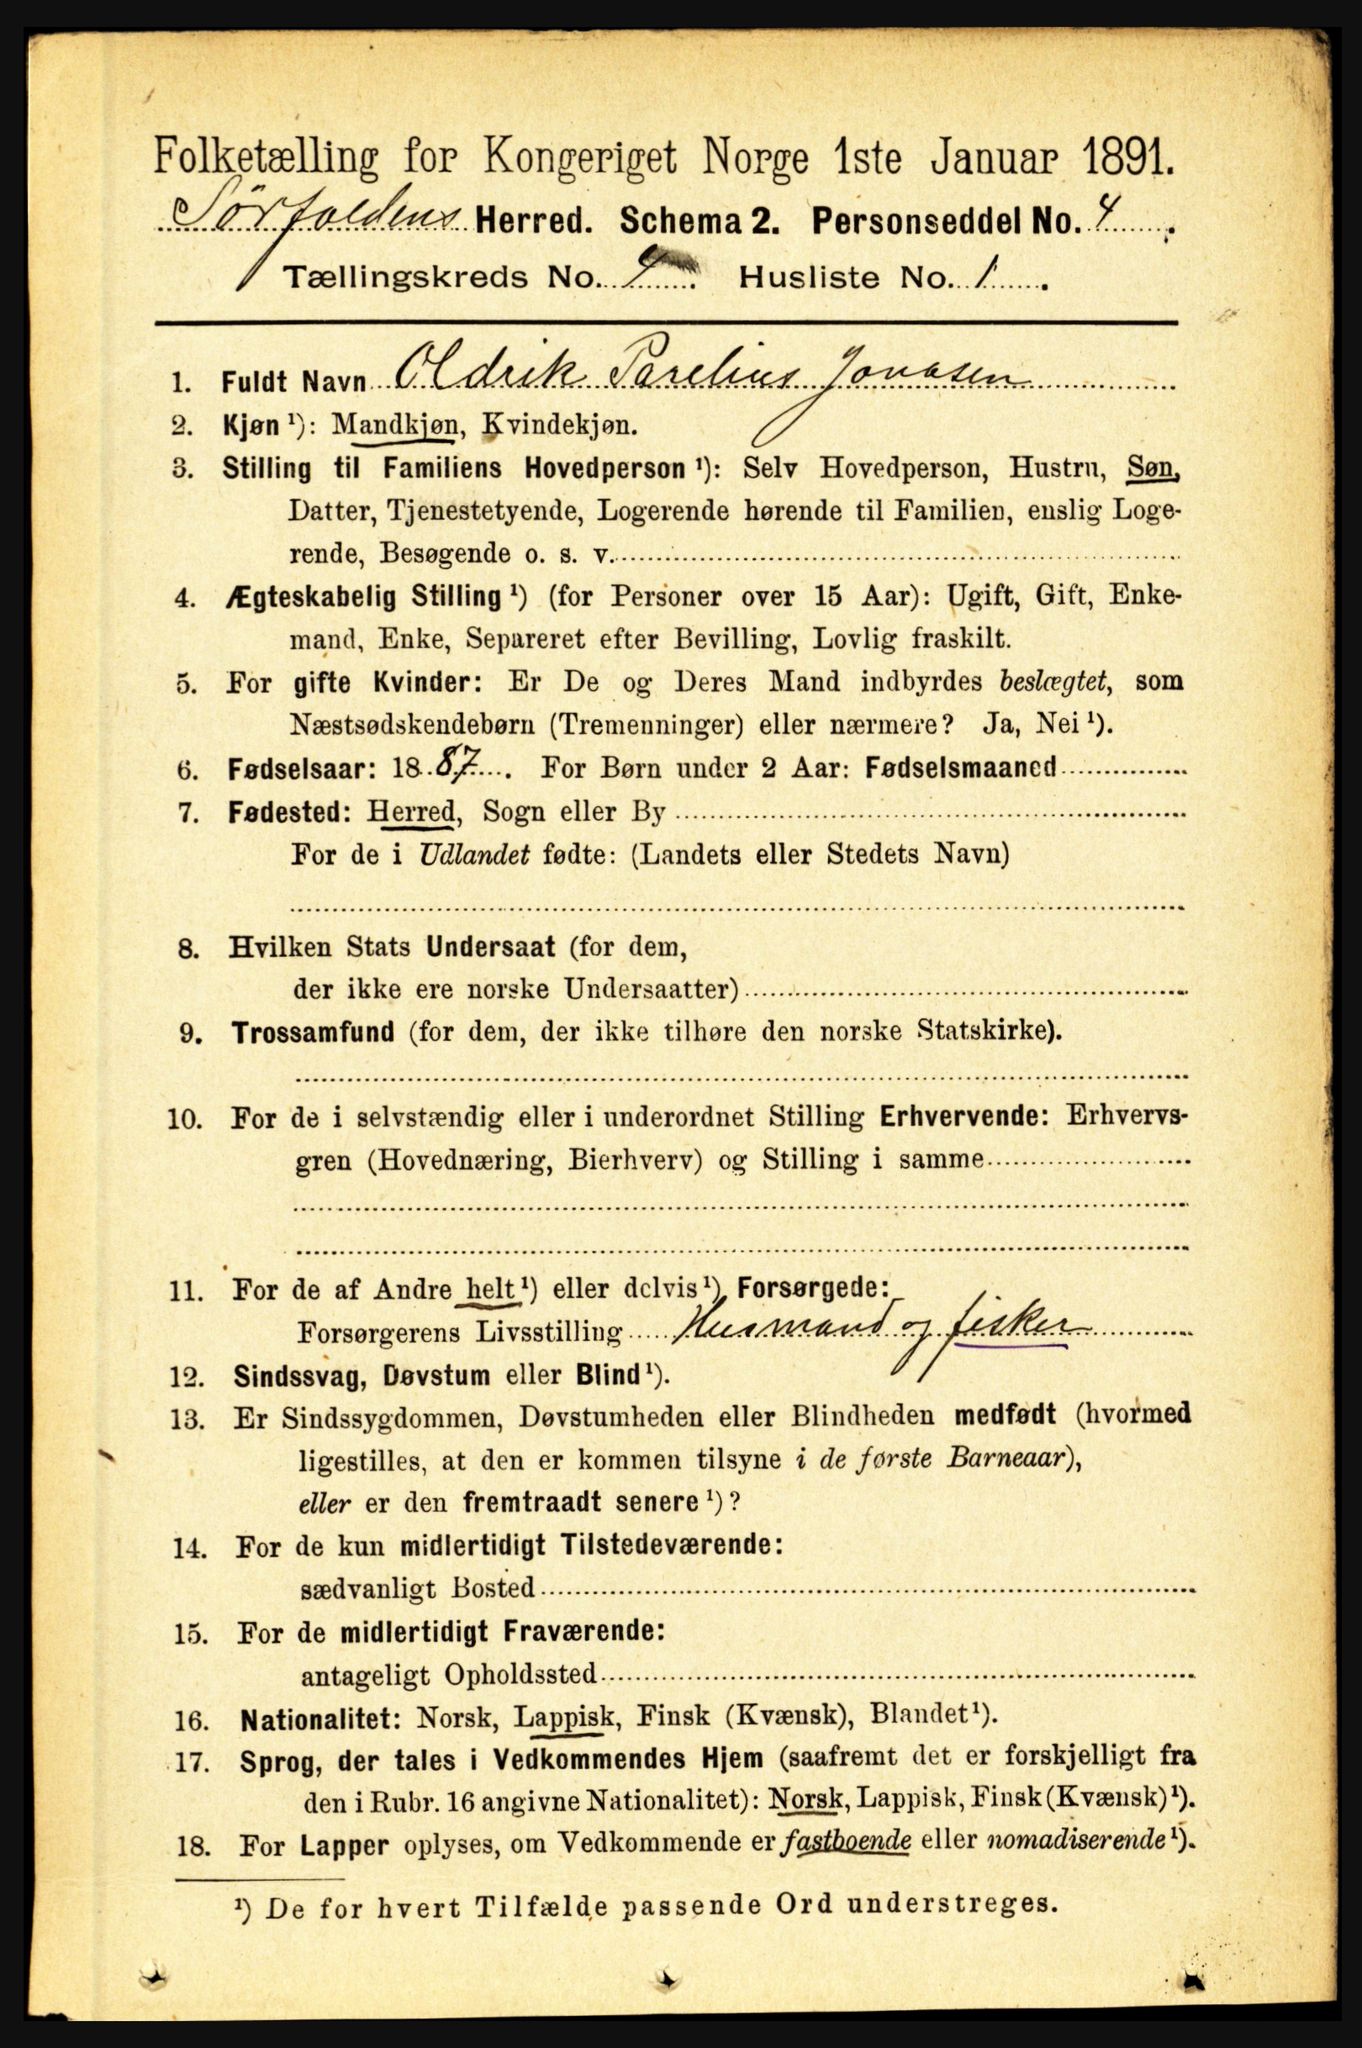 Folketælling for Kongeriget Norge 1ste Januar 1891.
Sørfoldens Herred. Schema 2. Personseddel No. 4.
Tællingskreds No. 4. Husliste No. 1.
1. Fuldt Navn Oldrik Parelius Jonasen
2. Kjøn ¹): Mandkjøn, Kvindekjøn.
3. Stilling til Familiens Hovedperson ¹): Selv Hovedperson, Hustru, Søn,
Datter, Tjenestetyende, Logerende hørende til Familien, enslig Loge-
rende, Besøgende o. s. v.
4. Ægteskabelig Stilling ¹) (for Personer over 15 Aar): Ugift, Gift, Enke-
mand, Enke, Separeret efter Bevilling, Lovlig fraskilt.
5. For gifte Kvinder: Er De og Deres Mand indbyrdes beslægtet, som
Næstsødskendebørn (Tremenninger) eller nærmere? Ja, Nei ¹).
6. Fødselsaar: 1887. For Børn under 2 Aar: Fødselsmaaned
7. Fødested: Herred, Sogn eller By
For de i Udlandet fødte: (Landets eller Stedets Navn)
8. Hvilken Stats Undersaat (for dem,
der ikke ere norske Undersaatter)
9. Trossamfund (for dem, der ikke tilhøre den norske Statskirke).
10. For de i selvstændig eller i underordnet Stilling Erhvervende: Erhvervs-
gren (Hovednæring, Bierhverv) og Stilling i samme
11. For de af Andre helt ¹) eller delvis ¹) Forsørgede:
Forsørgerens Livsstilling Husmand og fisker
12. Sindssvag, Døvstum eller Blind ¹).
13. Er Sindssygdommen, Døvstumheden eller Blindheden medfødt (hvormed
ligestilles, at den er kommen tilsyne i de første Barneaar),
eller er den fremtraadt senere ¹)?
14. For de kun midlertidigt Tilstedeværende:
sædvanligt Bosted
15. For de midlertidigt Fraværende:
antageligt Opholdssted
16. Nationalitet: Norsk, Lappisk, Finsk (Kvænsk), Blandet ¹).
17. Sprog, der tales i Vedkommendes Hjem (saafremt det er forskjelligt fra
den i Rubr. 16 angivne Nationalitet): Norsk, Lappisk, Finsk (Kvænsk) ¹).
18. For Lapper oplyses, om Vedkommende er fastboende eller nomadiserende ¹).
¹) De for hvert Tilfælde passende Ord understreges.